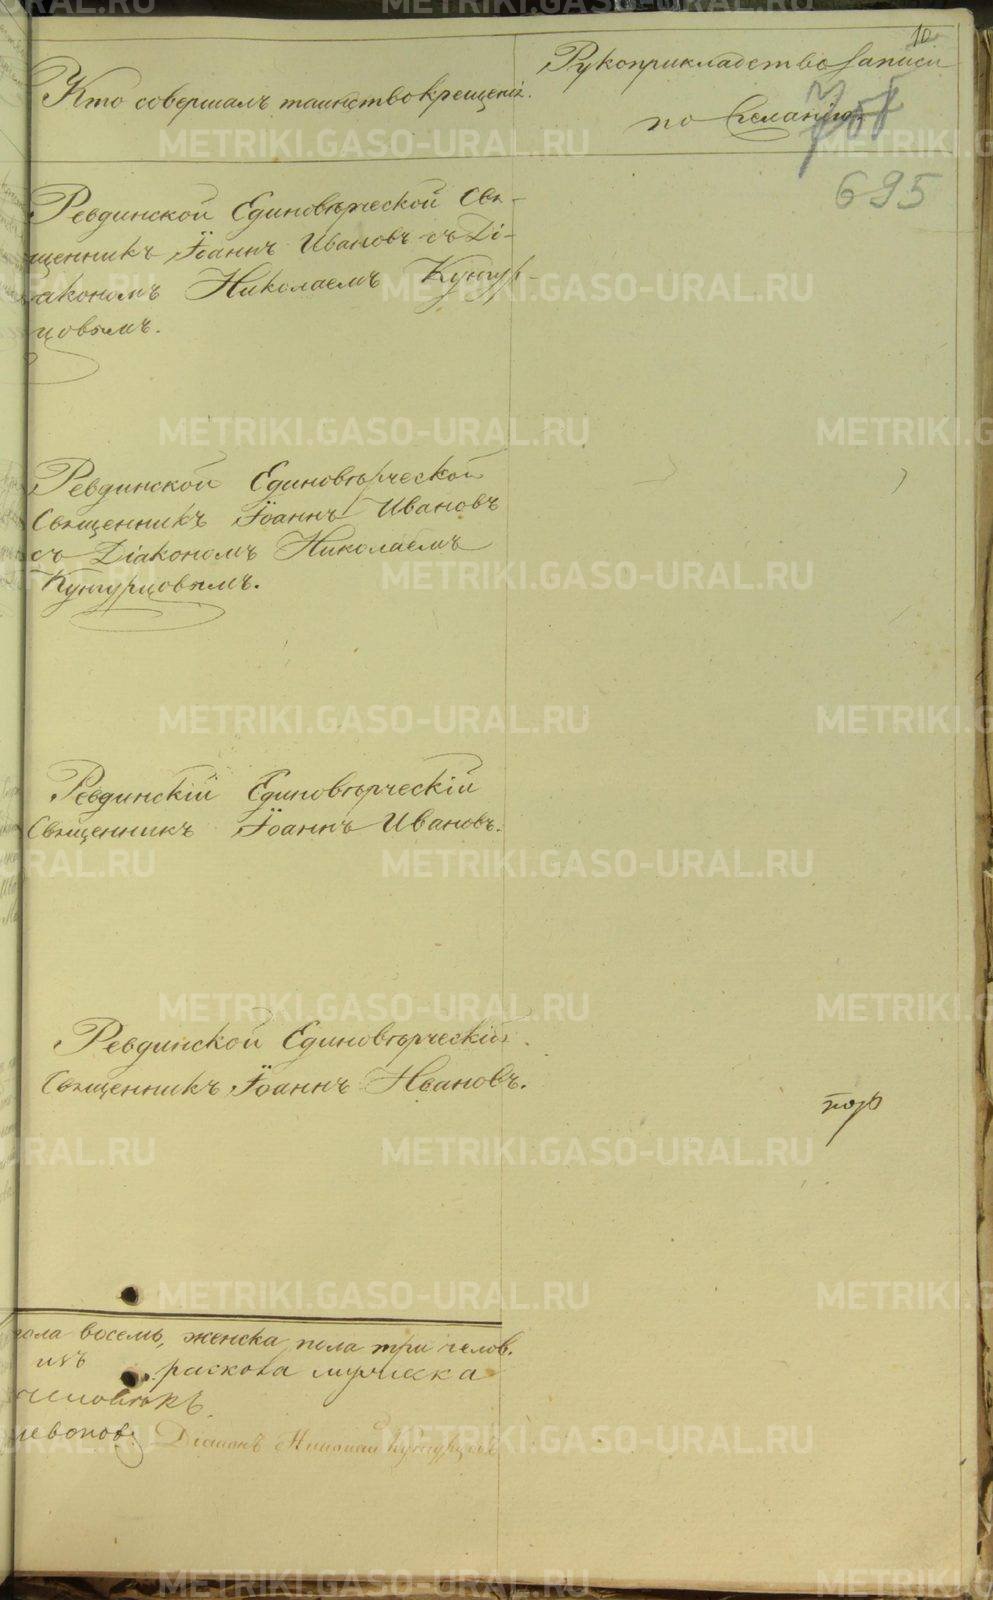 10
Кто совершалъ таинство крещенія.
Рукоприкладство записи
по желанію
695
Ревдинской Единовѣрческой Свя-
щенникъ Іоаннъ Ивановъ съ Ді-
акономъ Николаемъ Кунгур-
цовымъ.
Ревдинской Единовѣрческой
Священникъ Іоаннъ Ивановъ
съ Діакономъ Николаемъ
Кунгурцовымъ.
Ревдинскій Единовѣрческій
Священникъ Іоаннъ Ивановъ.
Ревдинской Единовѣрческій
Священникъ Іоаннъ Ивановъ.
пола восемь, женска пола три челов.
изъ раскола мужеска
человѣкъ.
Діаконъ Николай Кунгурцовъ
METRIKI.GASO-URAL.RU